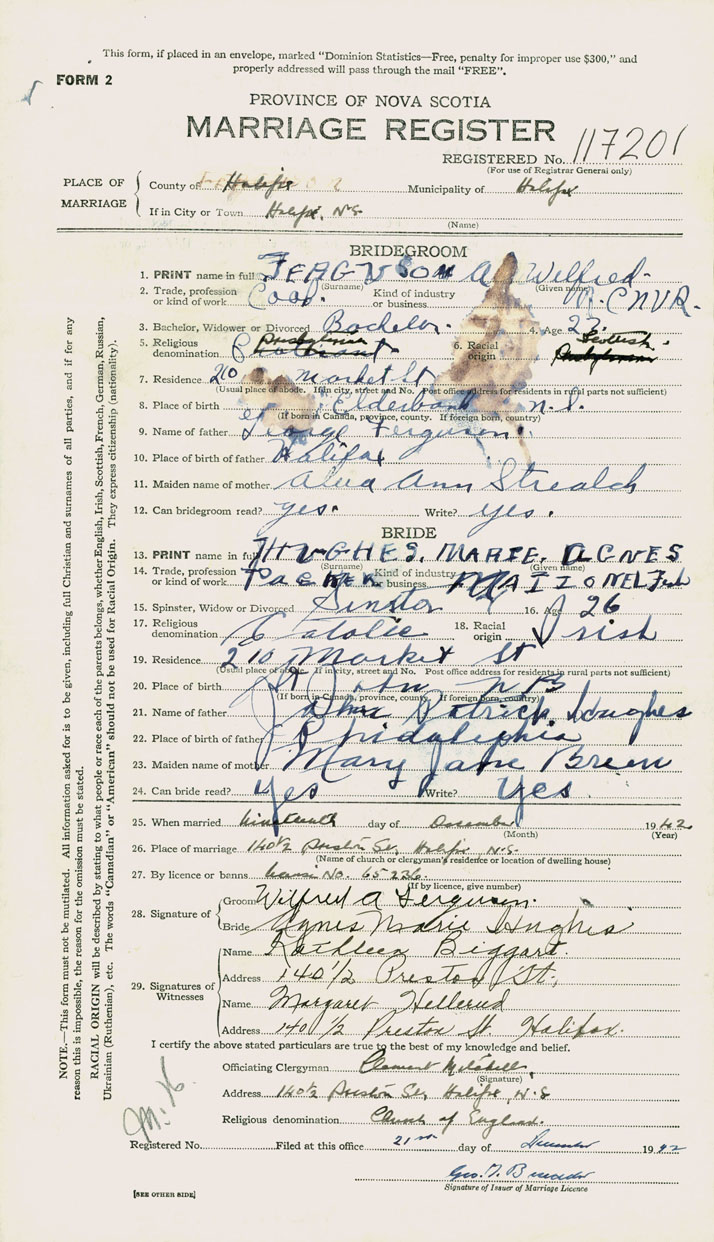 This form, if placed in an envelope, marked "Dominion Statistics—Free, penalty for improper use $300," and
properly addressed will pass through the mail "FREE".
FORM 2
PROVINCE OF NOVA SCOTIA
MARRIAGE REGISTER
REGISTERED No. 117201
(For use of Registrar General only)
PLACE OF MARRIAGE
County of Halifax Municipality of Halifax
If in City or Town Halifax, N.S.
(Name)
BRIDEGROOM
1. PRINT name in full FERGUSON A Wilfred
(Surname) (Given name)
2. Trade, profession or kind of work Cook Kind of industry or business R.C.N.V.R.
3. Bachelor, Widower or Divorced Bachelor. 4. Age 23
5. Religious denomination 6. Racial origin Scottish
7. Residence 210 Market St
(Usual place of abode. If in city, street and No. Post office address for residents in rural parts not sufficient)
8. Place of birth Elderbank N.S.
(If born in Canada, province, county. If foreign born, country)
9. Name of father George Ferguson
10. Place of birth of father Halifax
11. Maiden name of mother Ann
12. Can bridegroom read? yes. Write? yes.
BRIDE
13. PRINT name in full HUGHES, MARIE, AGNES
(Surname) (Given name)
14. Trade, profession or kind of work Packer Kind of industry or business NATIONEL Fish
15. Spinster, Widow or Divorced 16. Age 26
17. Religious denomination Catolic 18. Racial origin Irish
19. Residence 210 Market St
(Usual place of abode. If in city, street and No. Post office address for residents in rural parts not sufficient)
20. Place of birth St John NB
(If born in Canada, province, county. If foreign born, country)
21. Name of father John Patrick Hughes
22. Place of birth of father
23. Maiden name of mother Mary Jane Breen
24. Can bride read? Yes Write? Yes
25. When married nineteenth day of December 1942
(Month) (Year)
26. Place of marriage 140½ Preston St, Halifax N.S.
(Name of church or clergyman's residence or location of dwelling house)
27. By licence or banns No. 65236
(If by licence, give number)
28. Signature of
Groom Wilfred A Ferguson.
Bride Agnes Marie Hughes
29. Signatures of Witnesses
Name Kathleen Biggart.
Address 140 1/2 Preston St,
Name Margaret Hellerud
Address 140 1/2 Preston St. Halifax.
I certify the above stated particulars are true to the best of my knowledge and belief.
Officiating Clergyman Clement
(Signature)
Address 140½ Preston St, Halifax, N.S
Religious denomination Church of England.
Registered No. Filed at this office 21st day of December 1942
Geo. T.
Signature of Issuer of Marriage Licence
[SEE OTHER SIDE]
NOTE.—This form must not be mutilated. All information asked for is to be given, including full Christian and surnames of all parties, and if for any
reason this is impossible, the reason for the omission must be stated.
RACIAL ORIGIN will be described by stating to what people or race each of the parents belongs, whether English, Irish, Scottish, French, German, Russian,
Ukrainian (Ruthenian), etc. The words "Canadian" or "American" should not be used for Racial Origin. They express citizenship (nationality).